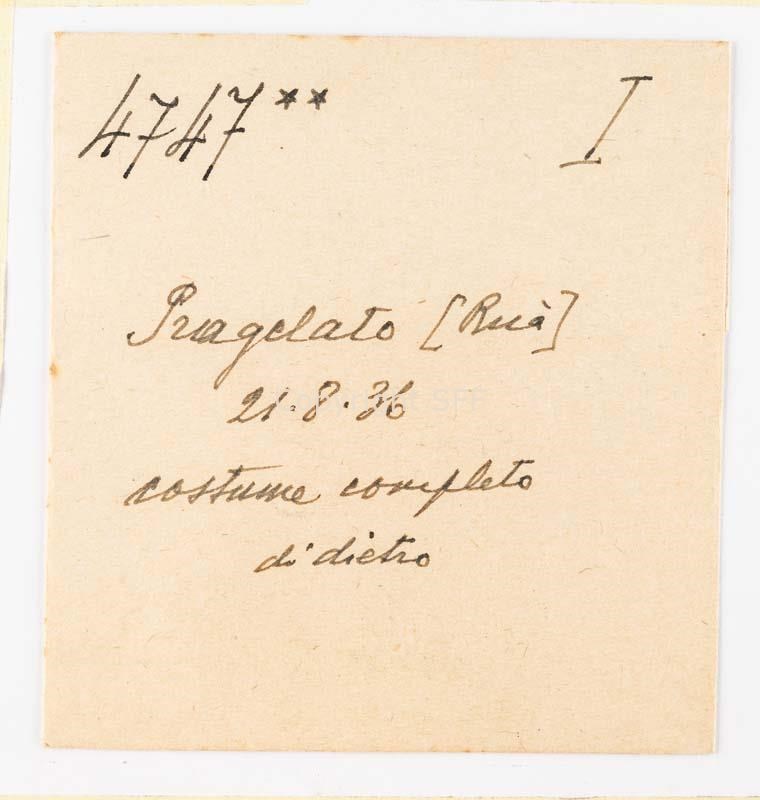 4747** I
Pragelato [Ruà]
21.8.36
costume completo
di dietro